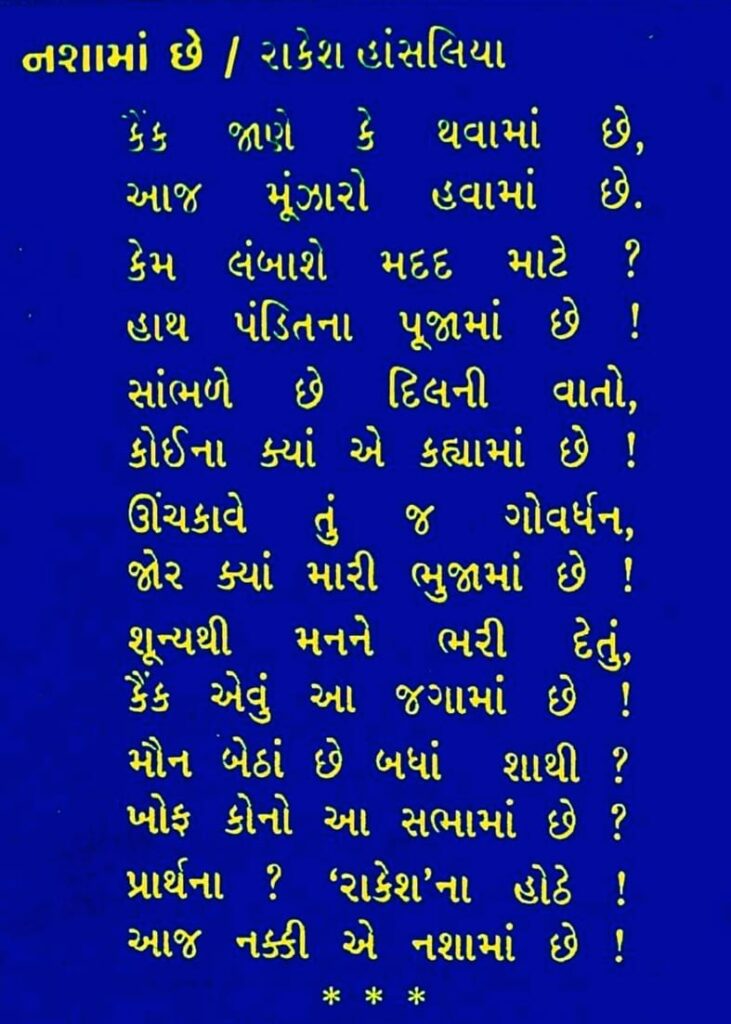 નશામાં છે / રાકેશ હાંસલિયા
કૈંક જાણે કે થવામાં છે,
આજ મૂંઝારો હવામાં છે.
કેમ લંબાશે મદદ માટે ?
હાથ પંડિતના પૂજામાં છે !
સાંભળે છે દિલની વાતો,
કોઈના ક્યાં એ કહ્યામાં છે !
ઊંચકાવે તું જ ગોવર્ધન,
જોર ક્યાં મારી ભુજામાં છે !
શૂન્યથી મનને ભરી દેતું,
કૈંક એવું આ જગામાં છે !
મૌન બેઠાં છે બધાં શાથી ?
ખોફ કોનો આ સભામાં છે ?
પ્રાર્થના ? ‘રાકેશ’ના હોઠે !
આજ નક્કી એ નશામાં છે !
* * *